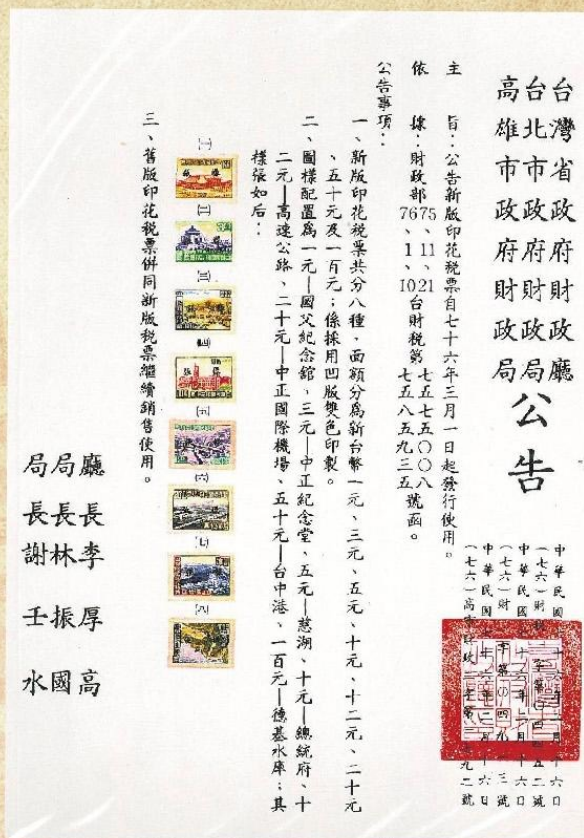 台灣省政府財政廳
台北市政府財政局
高雄市政府財政局
公告
主　旨：公告新版印花稅票自七十六年三月一日起發行使用。
依　據：財政部75、11、21台財稅第七五七五〇〇八
76、1、10　七五八五九三五號函。
公告事項：
一、新版印花稅票共分八種，面額分為新台幣一元、三元、五元、十元、十二元、二十元
、五十元及一百元；係採用凹版雙色印製。
二、圖樣配置為一元—國父紀念館、三元—中正紀念堂、五元—慈湖、十元—總統府、十
二元—高速公路、二十元—中正國際機場、五十元—台中港、一百元—德基水庫；其
樣張如后：
(一)
(二)
(三)
(四)
(五)
(六)
(七)
(八)
三、舊版印花稅票併同新版稅票繼續銷售使用。
廳長李厚高
局長林振國
局長謝壬水